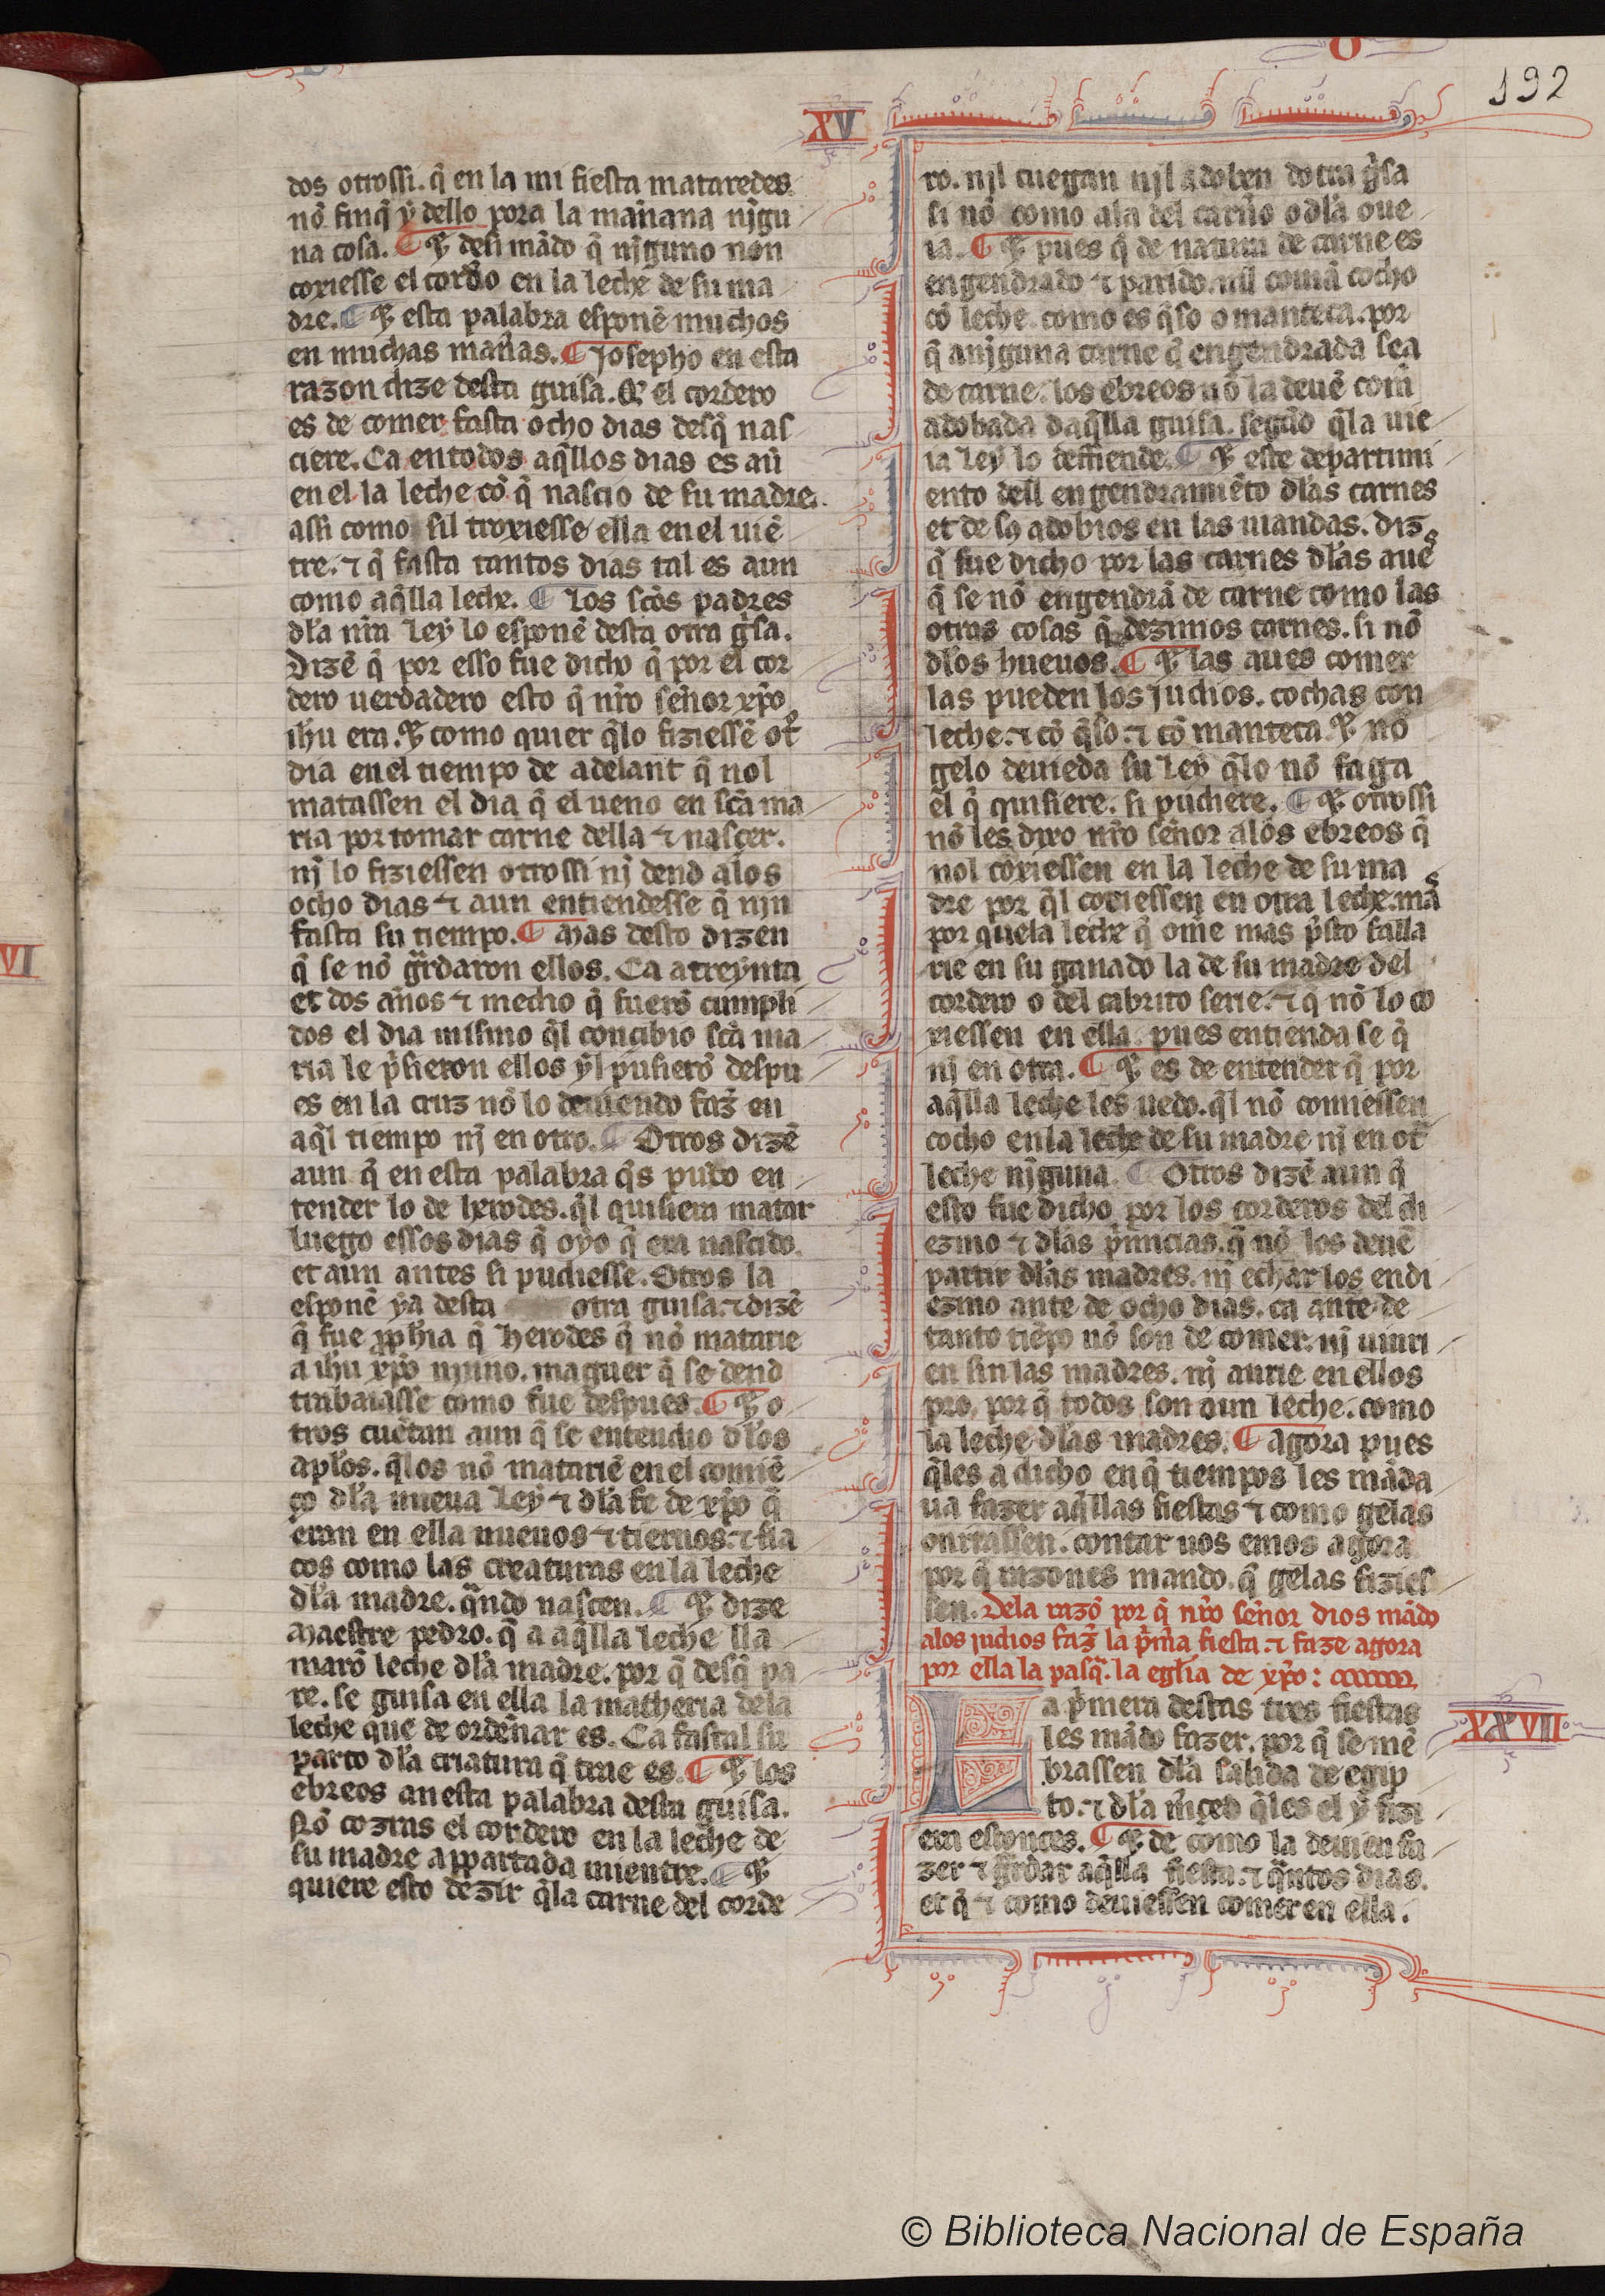 192
XV
dos otrossi. q̃ en la mi fiesta mataredes
nõ finq̃ ẏ dello pora la man̄ana nj̃gu
na cosa. ¶ ⁊ desi mãdo q̃ nj̃guno non
coxiesse el cordo en la leche de su ma
dre. ¶ ⁊ esta palabra esponẽ muchos
en muchas man̄as. ¶ Josepho en esta
razon dize desta guisa. Q̃ el cordero
es de comer fasta ocho dias desq̃ nas
ciere. Ca en todos aq̃llos dias es aũ
en el la leche cõ q̃ nascio de su madre.
assi como sil troxiesse ella en el uiẽ
tre. ⁊ q̃ fasta tantos dias tal es aun
como aq̃lla leche. ¶ Los scõs padres
dl̃a nr̃a Ley lo esponẽ desta otra gͥsa.
Dizẽ q̃ por esso fue dicho q̃ por el cor
dero uerdadero esto q̃ nr̃o sen̄or xp̃o
ih̃u era. ⁊ como quier q̃lo fiziessẽ ot̃
dia en el tiempo de adelant q̃ nol
matassen el dia q̃ el ueno en sc̃a ma
ria por tomar carne della ⁊ nasçer.
nj lo fiziessen otrossi nj dend alos
ocho dias ⁊ aun entendiesse q̃ njn
fasta su tiempo. ¶ Mas desto dizen
q̃ se nõ gr̃daron ellos. Ca a treynta
et dos an̄os ⁊ medio q̃ fuerõ cumpli
dos el dia mismo q̃l concibio sc̃a ma
ria le p̃sieron ellos yl pusierõ despu
es en la cruz nõ lo deuiendo faz̃ en
aq̃l tiempo nj en otro. ¶ Otros dizẽ
aun q̃ en esta palabra q̃s pudo en
tender lo de herodes. q̃l quisiera matar
luego essos dias q̃ oyo q̃ era nascido.
et aun antes si pudiesse. Otros la
esponẽ ya desta otra guisa. ⁊ dizẽ
q̃ fue p̃ph̃ia q̃ Herodes q̃ nõ matarie
a ih̃u xp̃o njnno. maguer q̃ se dend
trabaiasse como fue despues. ¶ ⁊ o
tros cuẽtan aun q̃ se entendio dl̃os
apl̃os. q̃los nõ matariẽ en el comiẽ
ço dl̃a nueua Ley ⁊ dl̃a fe de xp̃o q̃
eran en ella nueuos ⁊ tiernos. ⁊ fla
cos como las creaturas en la leche
dl̃a madre. q̃ndo nascen. ¶ ⁊ dize
Maestre pedro. q̃ a aq̃lla leche lla
marõ leche dl̃a madre. por q̃ desq̃ pa
re. se guisa en ella la matheria dela
leche que de orden̄ar es. Ca fastal su
parto dl̃a criatura q̃ trae es. ¶ ⁊ los
ebreos an esta palabra desta guisa.
Nõ cozras el cordero en la leche de
su madre appartada mientre. ¶ ⁊
quiere esto dezir q̃la carne del corde
ro. njl cuegan njl adoben dotra gͥsa
si nõ como ala del carn̄o o dl̃a oue
ia. ¶ ⁊ pues q̃ de natura de carne es
engendrado ⁊ parido. nil comã cocho
cõ leche. como es q̃so o manteca. por
q̃ anj̃guna carne q̃ engendrada sea
de carne. los ebreos nõ la deuẽ com̃
adobada daq̃lla guisa. segũd q̃la uie
ia Ley lo defiende. ¶ ⁊ este departimi
ento dell engendramiẽto dl̃as carnes
et de sꝯ adobios en las uiandas. diz
q̃ fue dicho por las carnes dl̃as auẽs
q̃ se nõ engendrã de carne como las
otras cosas q̃ dezimos carnes. si nõ
dl̃os hueuos. ¶ ⁊ las aues comer
las pueden los judios. cochas con
leche. ⁊ cõ q̃so. ⁊ cõ manteca. ⁊ nõ
gelo deuieda su Ley q̃lo nõ faga
el q̃ quisiere. si pudiere. ¶ ⁊ otrossi
nõ les dixo nr̃o sen̄or alos ebreos q̃
nol coxiessen en la leche de su ma
dre por q̃l coxiessen en otra leche. mas
por quela leche q̃ om̃e mas p̃sto falla
rie en su ganado la de su madre del
cordero o del cabrito serie. ⁊ q̃ nõ lo co
xiessen en ella. pues entienda se q̃
nj en otra. ¶ ⁊ es de entender q̃ por
aq̃lla leche les uedo. q̃l nõ comiessen
cocho en la leche de su madre nj en ot̃
leche nj̃guna. ¶ Otros dizẽ aun q̃
esto fue dicho por los corderos del di
ezmo ⁊ dl̃as p̃micias. q̃ nõ los deuẽ
partir dl̃as madres. nj echar los en di
ezmo ante de ocho dias. ca ante de
tanto tiẽpo nõ son de comer. nj uiuri
en sin las madres. nj aurie en ellos
pro. por q̃ todos son aun leche. como
la leche dl̃as madres. ¶ Agora pues
q̃les a dicho en q̃ tiempos les mãda
ua fazer aq̃llas fiestas ⁊ como gelas
onrrassen. contar uos emos agora
por q̃ razones mando. q̃ gelas fizies
sen. Dela razõ por q̃ nr̃o sen̄or dios mãdo
alos judios faz̃ la p̃m̃a fiesta. ⁊ faze agora
por ella la pasq̃. la egl̃ia de xp̃o:
XXVIII
La p̃mera destas tres fiestas
les mãdo fazer. por q̃ se mẽ
brassen dl̃a salida de egip
to. ⁊ dl̃a m̃çed q̃les el ẏ fizi
era estonces. ¶ ⁊ de como la deuien fa
zer ⁊ gr̃dar aq̃lla fiesta. ⁊ q̃ntos dias.
et q̃ ⁊ como deuiessen comer en ella.
VI
© Biblioteca Nacional de España